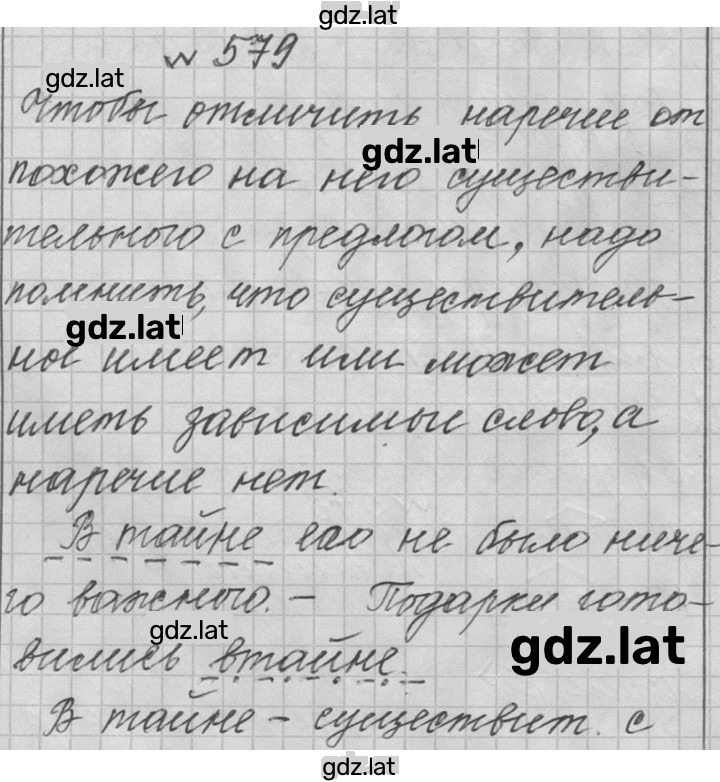 gdz.lat
№ 579
gdz.lat
Чтобы отличить наречие от
gdz.lat
похожего на него существи-
тельного с предлогом, надо
помнить, что существитель-
gdz.lat
ное имеет или может
иметь зависимые слово, а
наречие нет.
В тайне его не было ниче-
го важного. - Подарки гото-
gdz.lat
вились втайне.
gdz.lat
В тайне - существит. с
gdz.lat